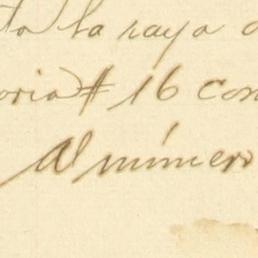 la raya
oria # 16 con
Al número